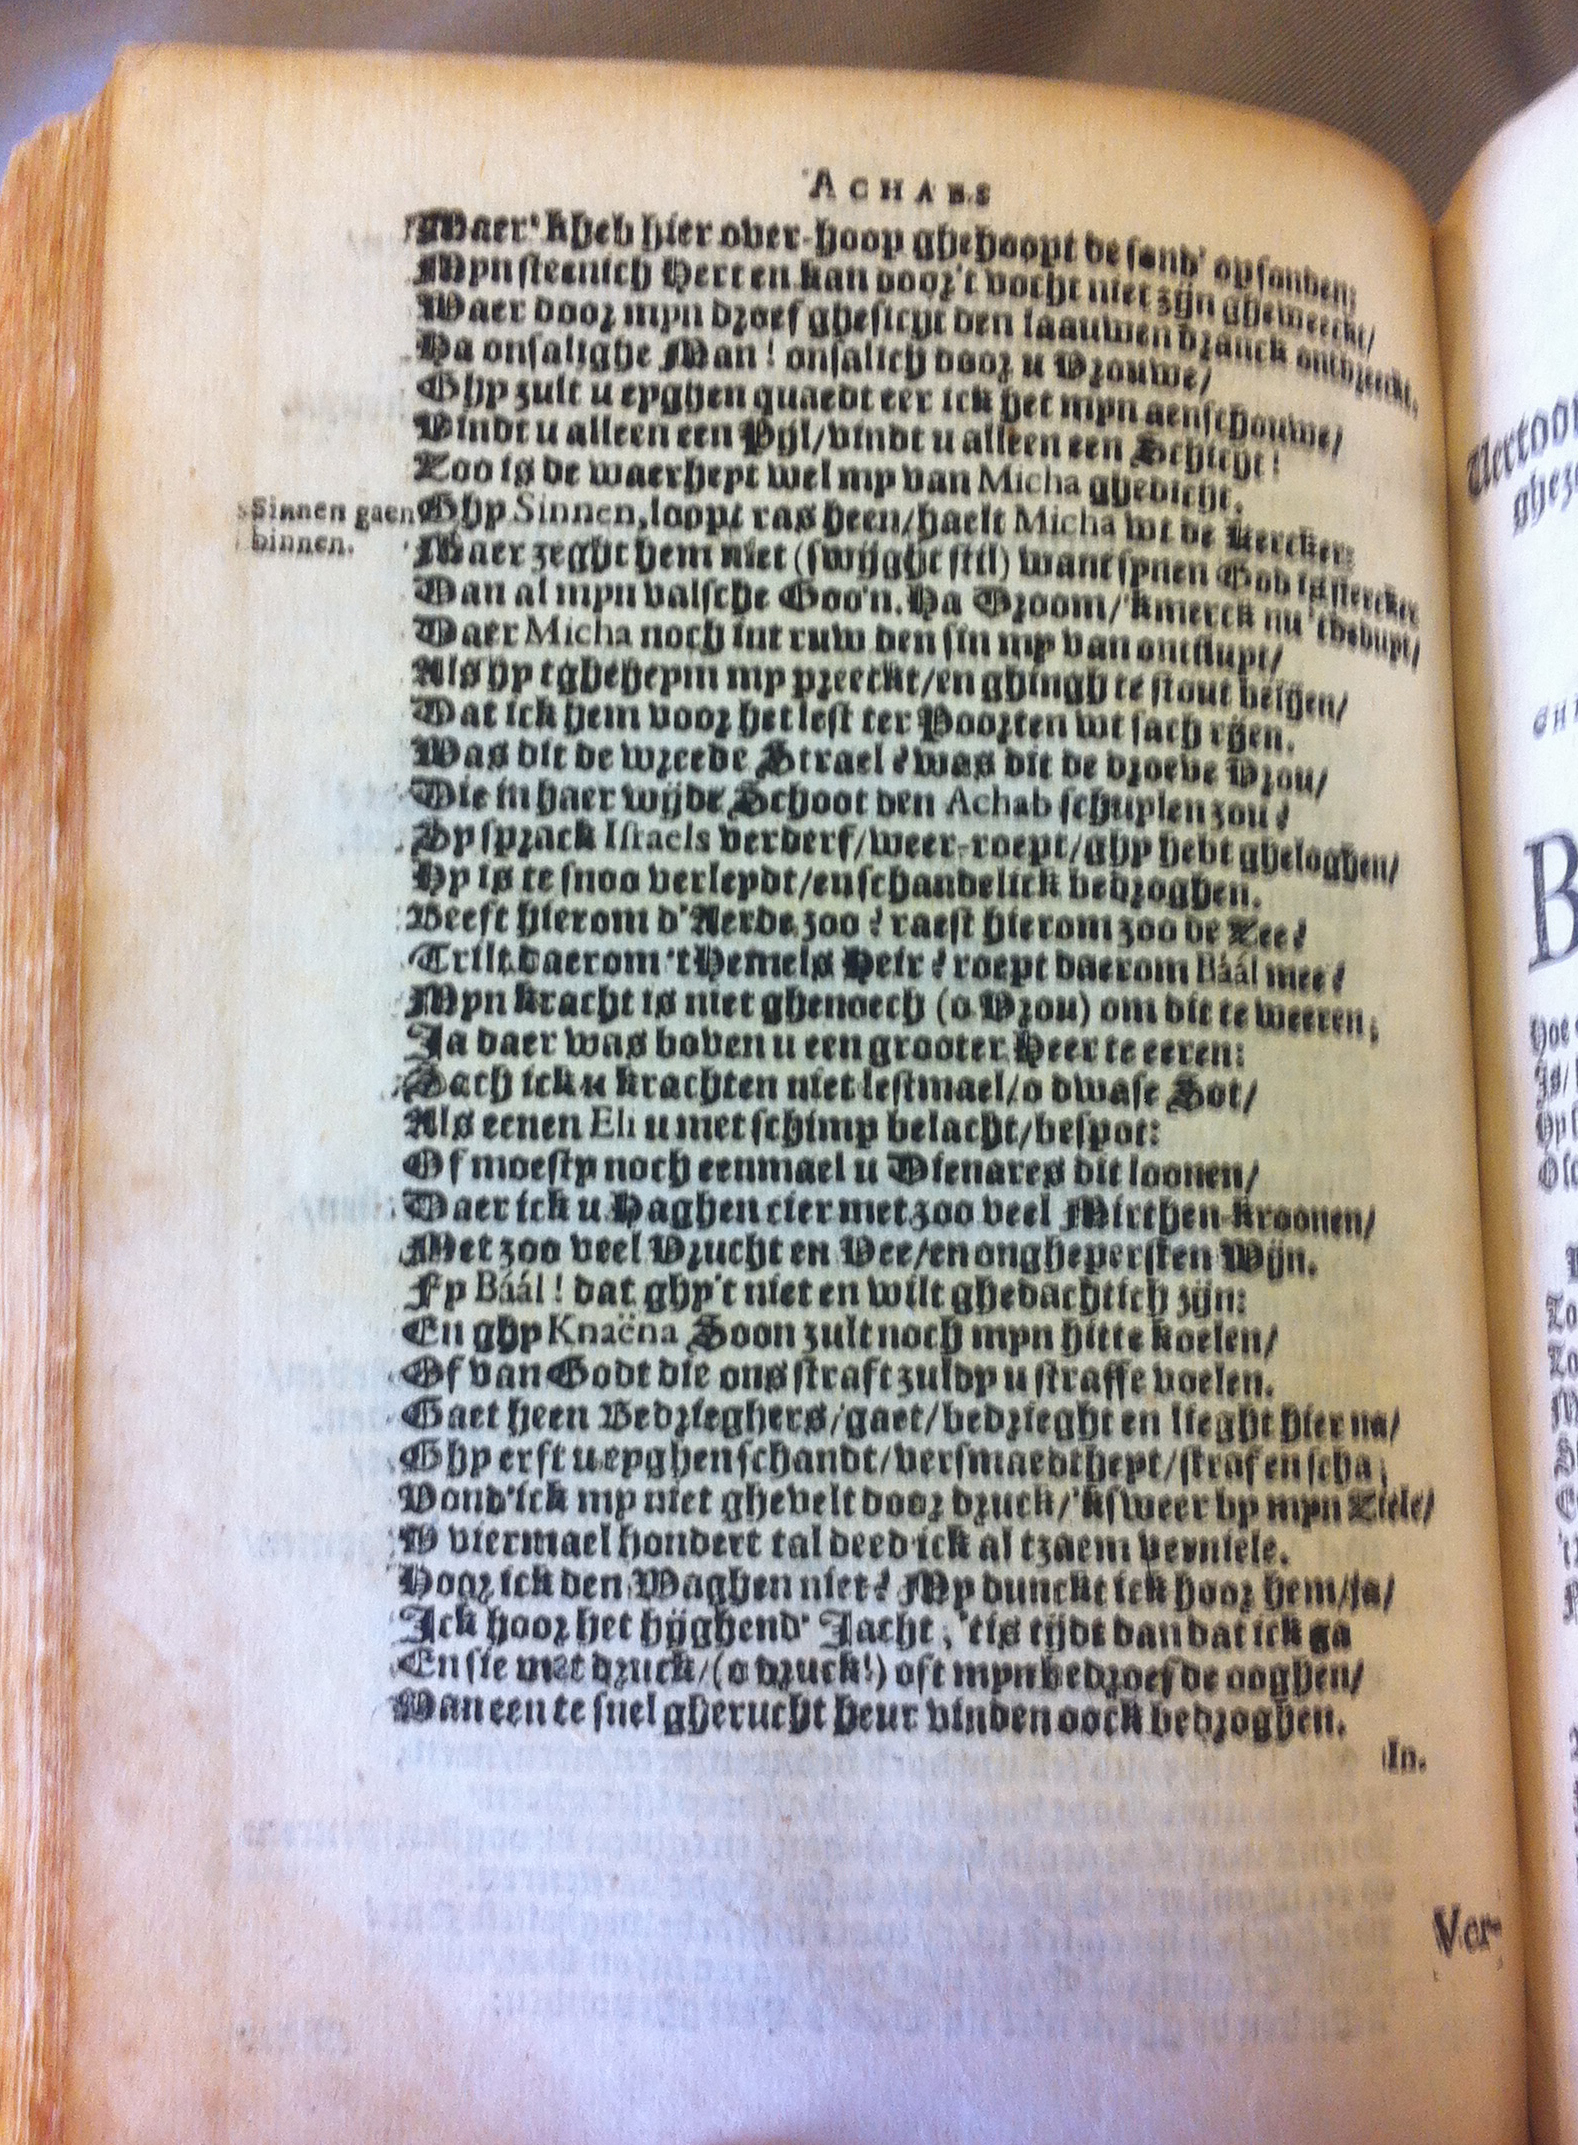 ACHABS
Maer 'kheb hier over-hoop ghehoopt de sond' op sonden;
Myn steenich Hert en kan door 't vocht niet zijn gheweeckt/
Waer door myn droef ghesicht den laauwen dranck ontbreeckt,
Ha onsalighe Man! onsalich door u Vrouwe/
Ghy zult u eyghen quaedt eer ick het myn aenschouwe/
Vindt u alleen een Pijl/vindt u alleen een Schicht!
Zoo is de waerheyt wel my van Micha ghedicht.
Sinnen gaen binnen.
Ghy Sinnen, loopt ras heen/haelt Micha wt de Kercker;
Maer zeght hem niet (swijght stil) want synen God is stercker
Dan al myn valsche Goo'n. Ha Droom/'kmerck nu 't beduyt/
Daer Micha noch int ruw den sin my van ontsluyt/
Als hy t gheheym my preeckt/en ghingh te stout belijen/
Dat ick hem voor het lest ter Poorten wt sach rijen.
Was dit de wreede Strael? was dit de droeve Vrou/
Die in haer wijde Schoot den Achab schuylen zou?
Sy sprack Israels verderf/weer-roept/ghy hebt gheloghen/
Hy is te snoo verleydt/en schandelick bedroghen.
Beeft hierom d'Aerde zoo? raest hierom zoo de Zee?
Trilt daerom 't Hemels Heir? roept daerom Báál mee?
Myn kracht is niet ghenoech (o Vrou) om dit te weeren;
Ja daer was boven u een grooter Heer te eeren:
Sach ick u krachten niet lestmael/o dwase Sot/
Als eenen Eli u met schimp belacht/bespot:
Of moesty noch eenmael u Dienares dit loonen/
Daer ick u Haghen cier met zoo veel Mirthen-kroonen/
Met zoo veel Vrucht en Vee/en onghepersten Wijn.
Fy Báál! dat ghy't niet en wilt ghedachtich zijn:
En ghy Knaëna Soon zult noch myn hitte koelen/
Of van Godt die ons straft zuldy u straffe voelen.
Gaet heen Bedrieghers/gaet/bedrieght en lieght hier na/
Ghy erft u eyghen schandt/versmaedtheyt/straf en scha;
Vond'ick my niet ghevelt door druck/'ksweer by myn Ziele/
V viermael hondert tal deed ick al tzaem verniele.
Hoor ick den Waghen niet? My dunckt ick hoor hem/ja/
Ick hoor het hijghend' Jacht, 'tis tijdt dan dat ick ga
En sie met druck/(o druck!) oft myn bedroefde ooghen/
Van een te snel gherucht heur vinden oock bedroghen.
In.
Ver-